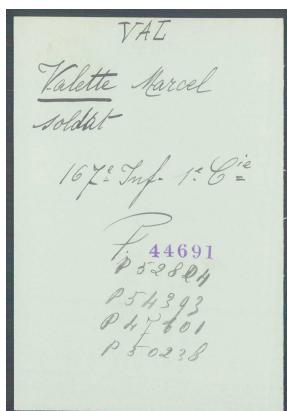 VAL
Valette Marcel
soldat
167e Inf. 1e Cie
P. 44691
P 52824
P 54393
P 47601
P 50238